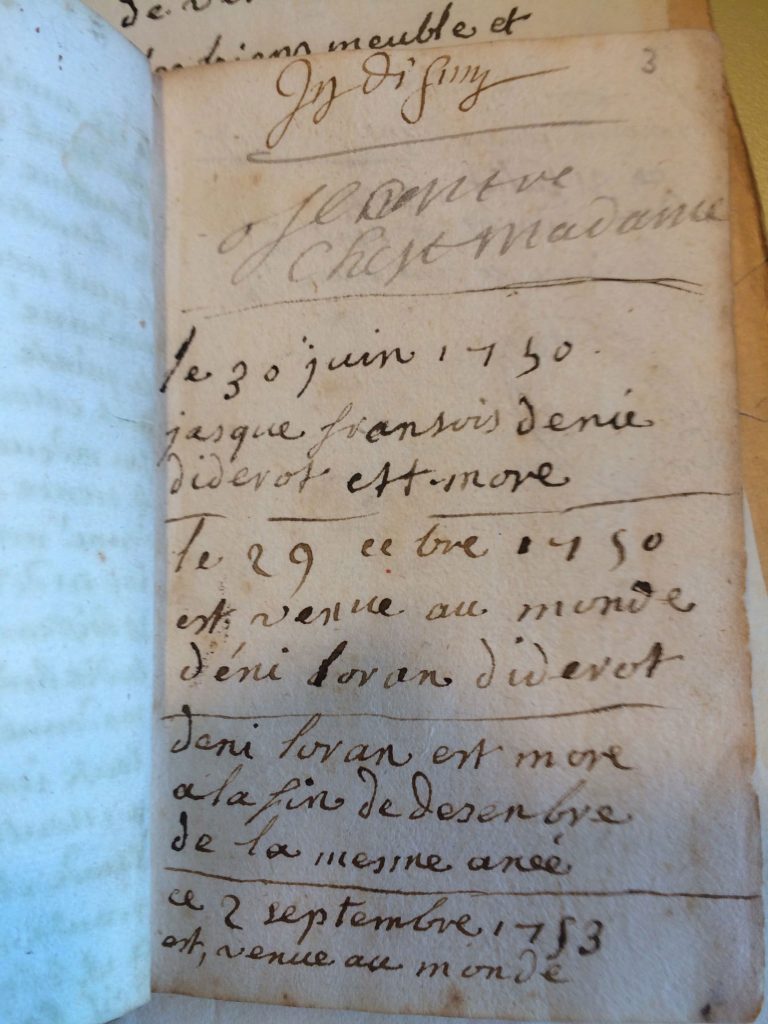 de
biens meuble et
3
chest madame
le 30 juin 1750
jasque fransois denie
diderot est more
le 29 cebre 1750
est venue au monde
déni loran diderot
deni loran est more
a la fin de desenbre
de la mesme aneé
ce 2 septembre 1753
est, venue au monde